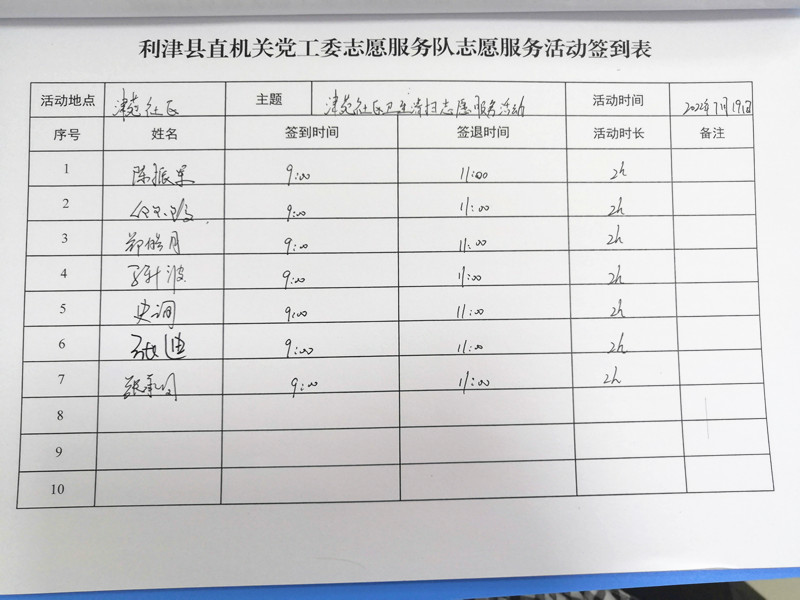 利津县直机关党工委志愿服务队志愿服务活动签到表
活动地点 津苑社区 主题 津苑社区卫生清扫志愿服务活动 活动时间 2022年7月19日
序号 姓名 签到时间 签退时间 活动时长 备注
1 陈振军 9:00 11:00 2h
2 9:00 11:00 2h
3 郑皓月 9:00 11:00 2h
4 9:00 11:00 2h
5 史润 9:00 11:00 2h
6 张迪 9:00 11:00 2h
7 9:00 11:00 2h
8
9
10